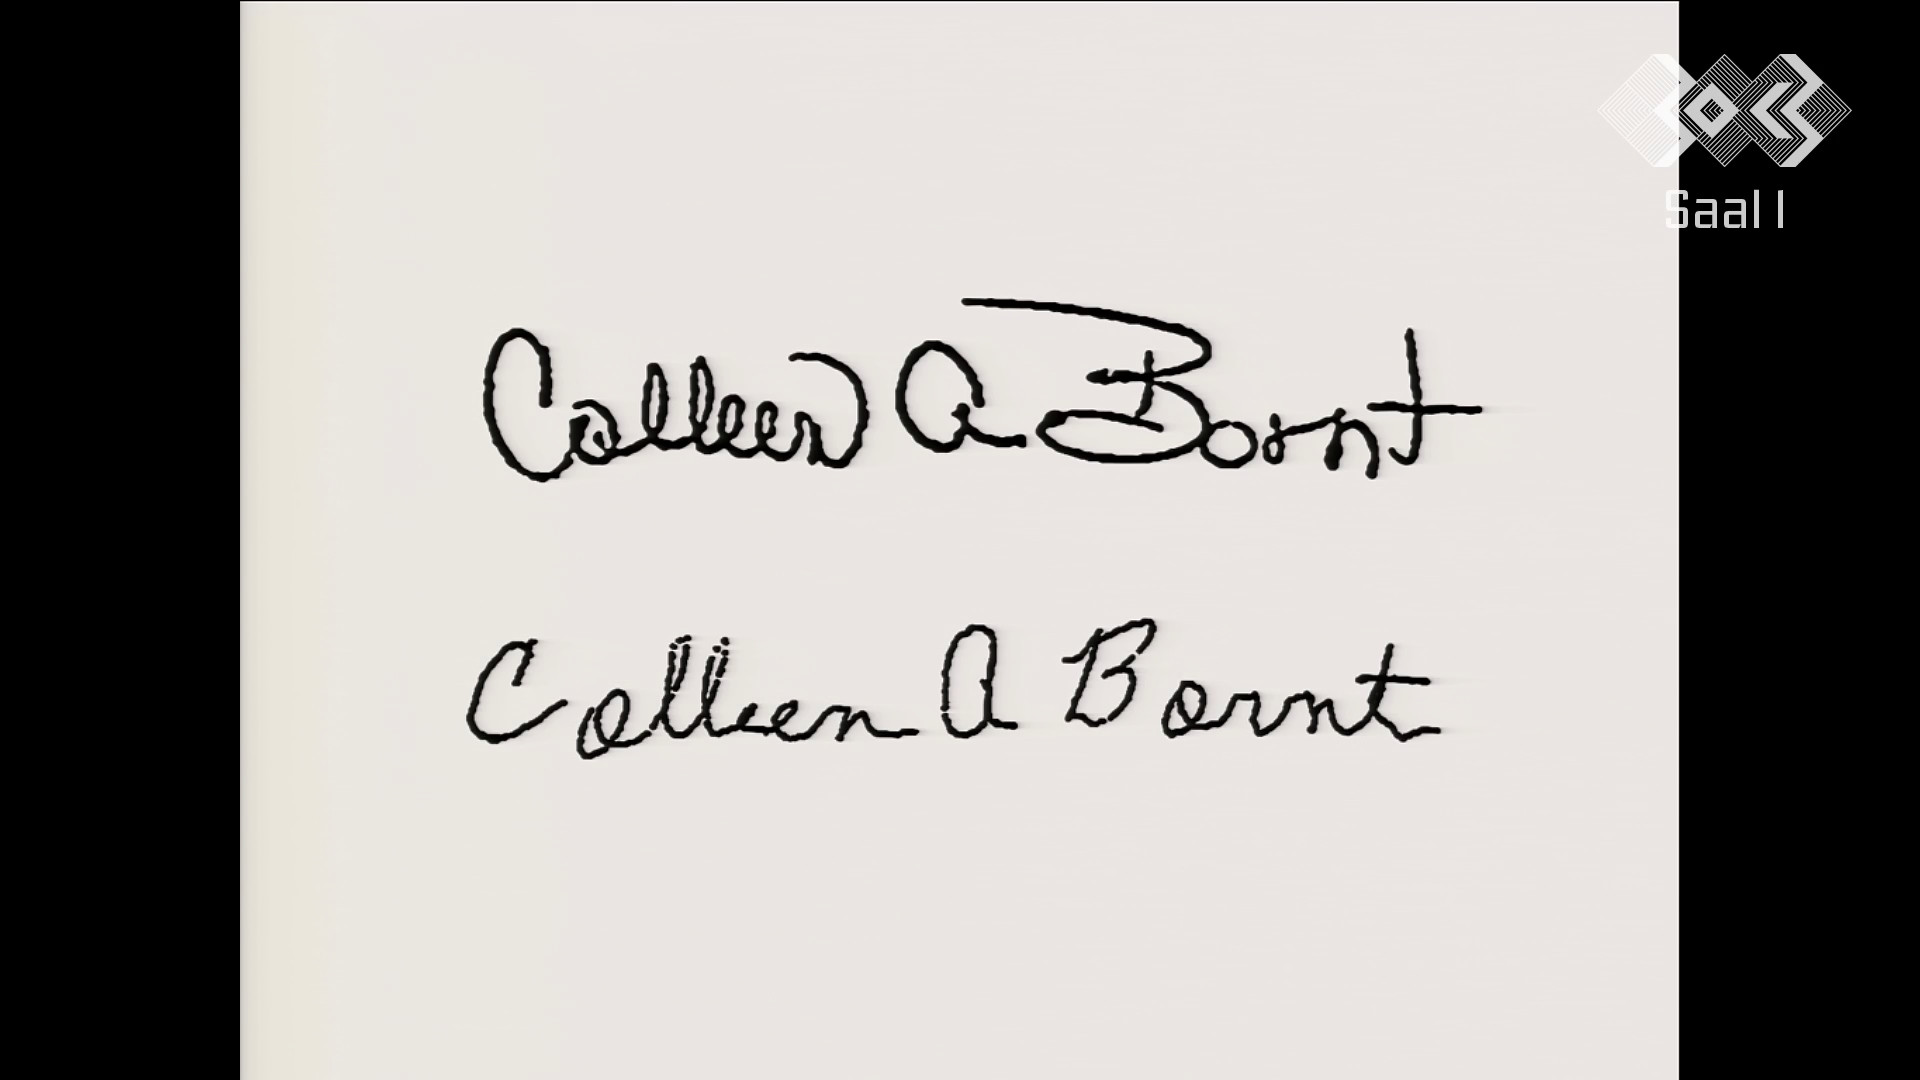 Saal 1
Colleen A Bornt
Colleen A Bornt